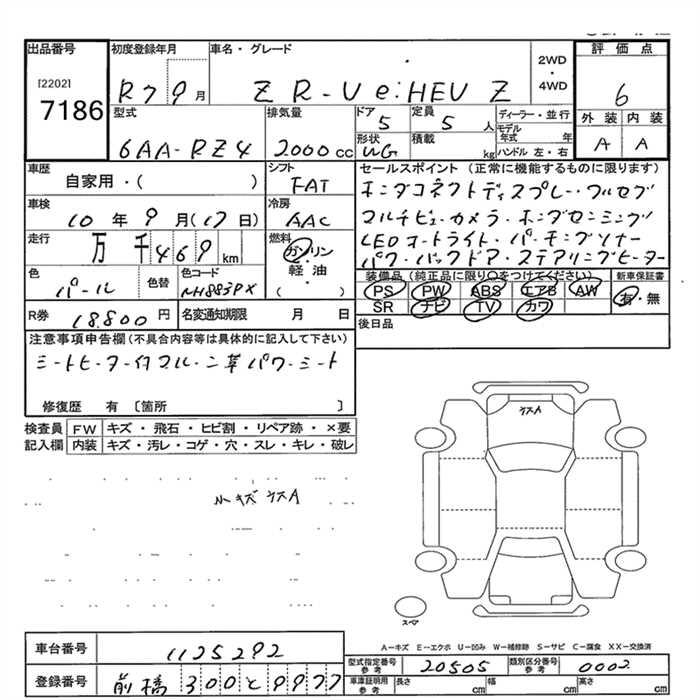 出品番号 初度登録年月 車名・グレード 2WD・4WD 評価点
[2202] 7186 R7 9月 ZR-V e:HEV Z 6
型式 排気量 ドア 定員 ディーラー・並行 外装 内装
6AA-RZ4 2000cc 5 5人 モデル年式 年 A A
形状 積載 ハンドル 左・右
WG kg
車歴 シフト セールスポイント(正常に機能するものに限ります)
自家用・( ) FAT ホンダコネクトディスプレー・フルセグ
車検 冷房 マルチビューカメラ・ホンダセンシング
10年9月(17日) AAC LEDオートライト・パーキングソナー
走行 燃料 パワーバックドア・ステアリングヒーター
万 千469km ガソリン・軽油・( )
色 色替 色コード 装備品(純正品に限り○をつけてください) 新車保証書
パール NH883PX PS PW ABS エアB AW 有・無
SR ナビ TV カワ
R券 18,800円 名変通知期限 月 日 後日品
注意事項申告欄(不具合内容等は具体的に記入して下さい)
シートヒーター付フル・ン革パワーシート
修復歴 有 〔箇所 〕
検査員記入欄 FW キズ・飛石・ヒビ割・リペア跡・×要
内装 キズ・汚レ・コゲ・穴・スレ・キレ・破レ
ルーキズ ウスA
ウスA
スペア
A―キズ E―エクボ U―凹み W―補修跡 S―サビ C―腐食 XX―交換済
車台番号 1125292
型式指定番号 参考 20505 類別区分番号 参考 0002
登録番号 前橋 300 と 9977
車庫証明用 参考 長さ cm 幅 cm 高さ cm